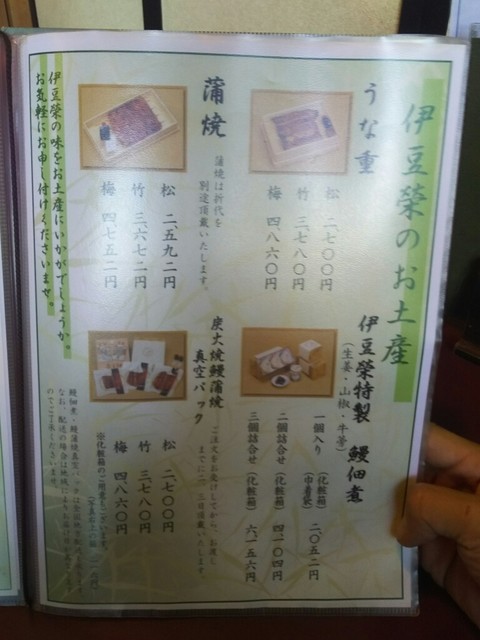 伊豆榮のお土産
うな重
松 二、七〇〇円
竹 三、七八〇円
梅 四、八六〇円
蒲焼
蒲焼は折代を
別途頂戴いたします。
松 二、五九二円
竹 三、六七二円
梅 四、七五二円
伊豆榮の味をお土産にいかがでしょうか。
お気軽にお申し付けくださいませ。
伊豆榮特製 鰻佃煮
(生姜・山椒・牛蒡)
一個入り (化粧箱)
(巾着袋) 二、〇五二円
二個詰合せ (化粧箱) 四、一〇四円
三個詰合せ (化粧箱) 六、一五六円
炭火焼鰻蒲焼
真空パック
ご注文をお受けしてから、お渡し
までに二、三日頂戴いたします。
松 二、七〇〇円
竹 三、七八〇円
梅 四、八六〇円
※化粧箱のご用意もございます。